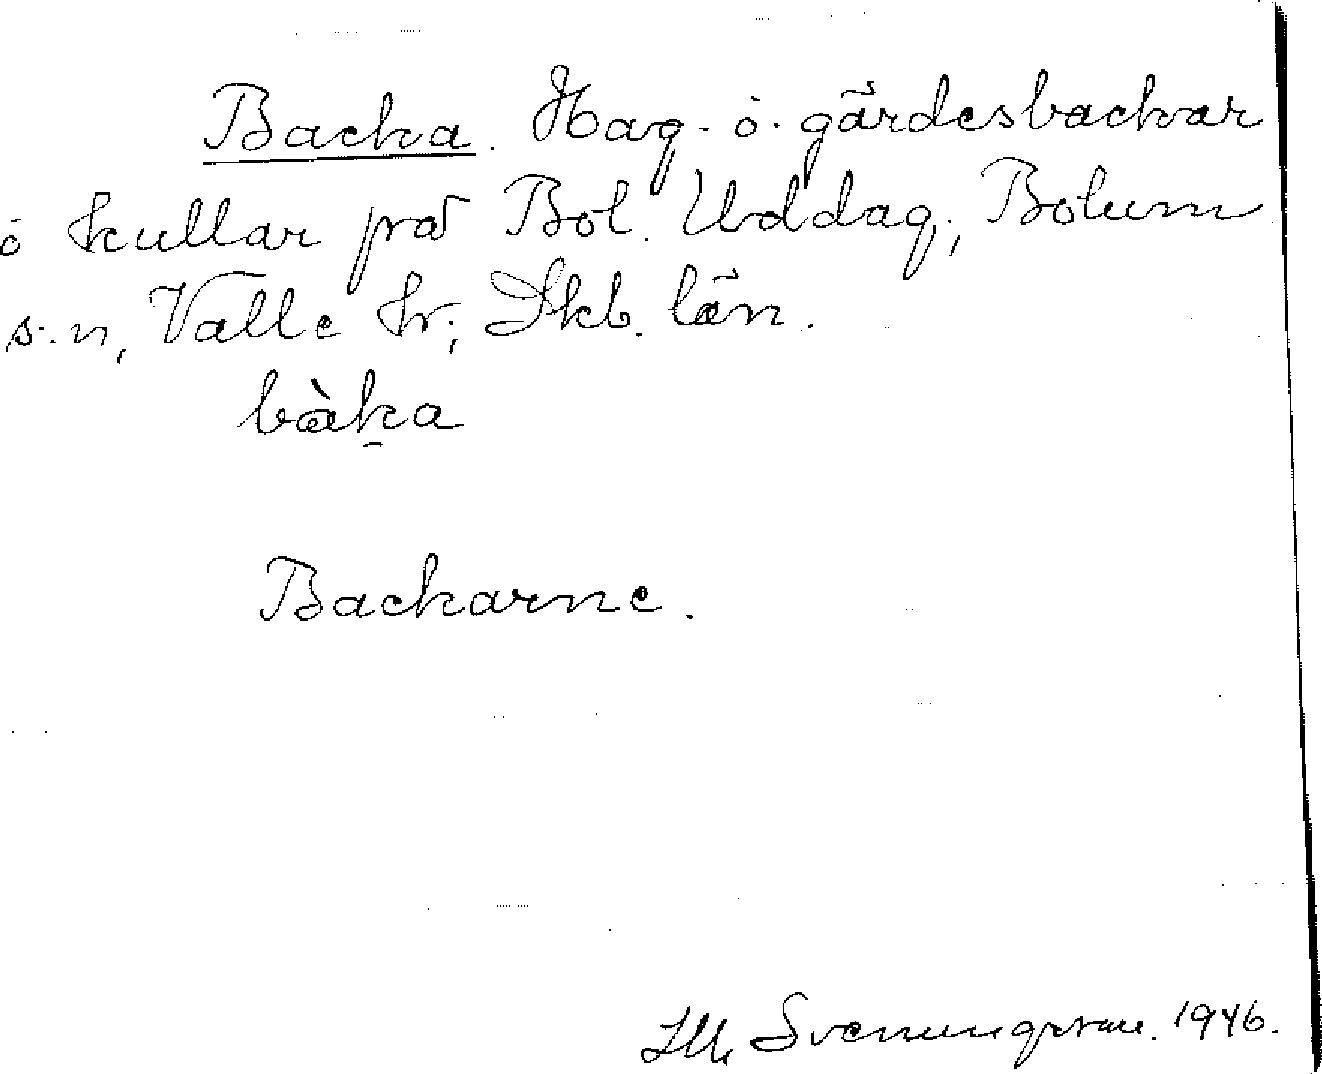 Backa. Hag- o. gärdesbackar
o kullar på Bol. Uddag., Bolum
s:n, Valle hr; Skb. län.
bàka
Backarne.
Svenungsson. 1946.